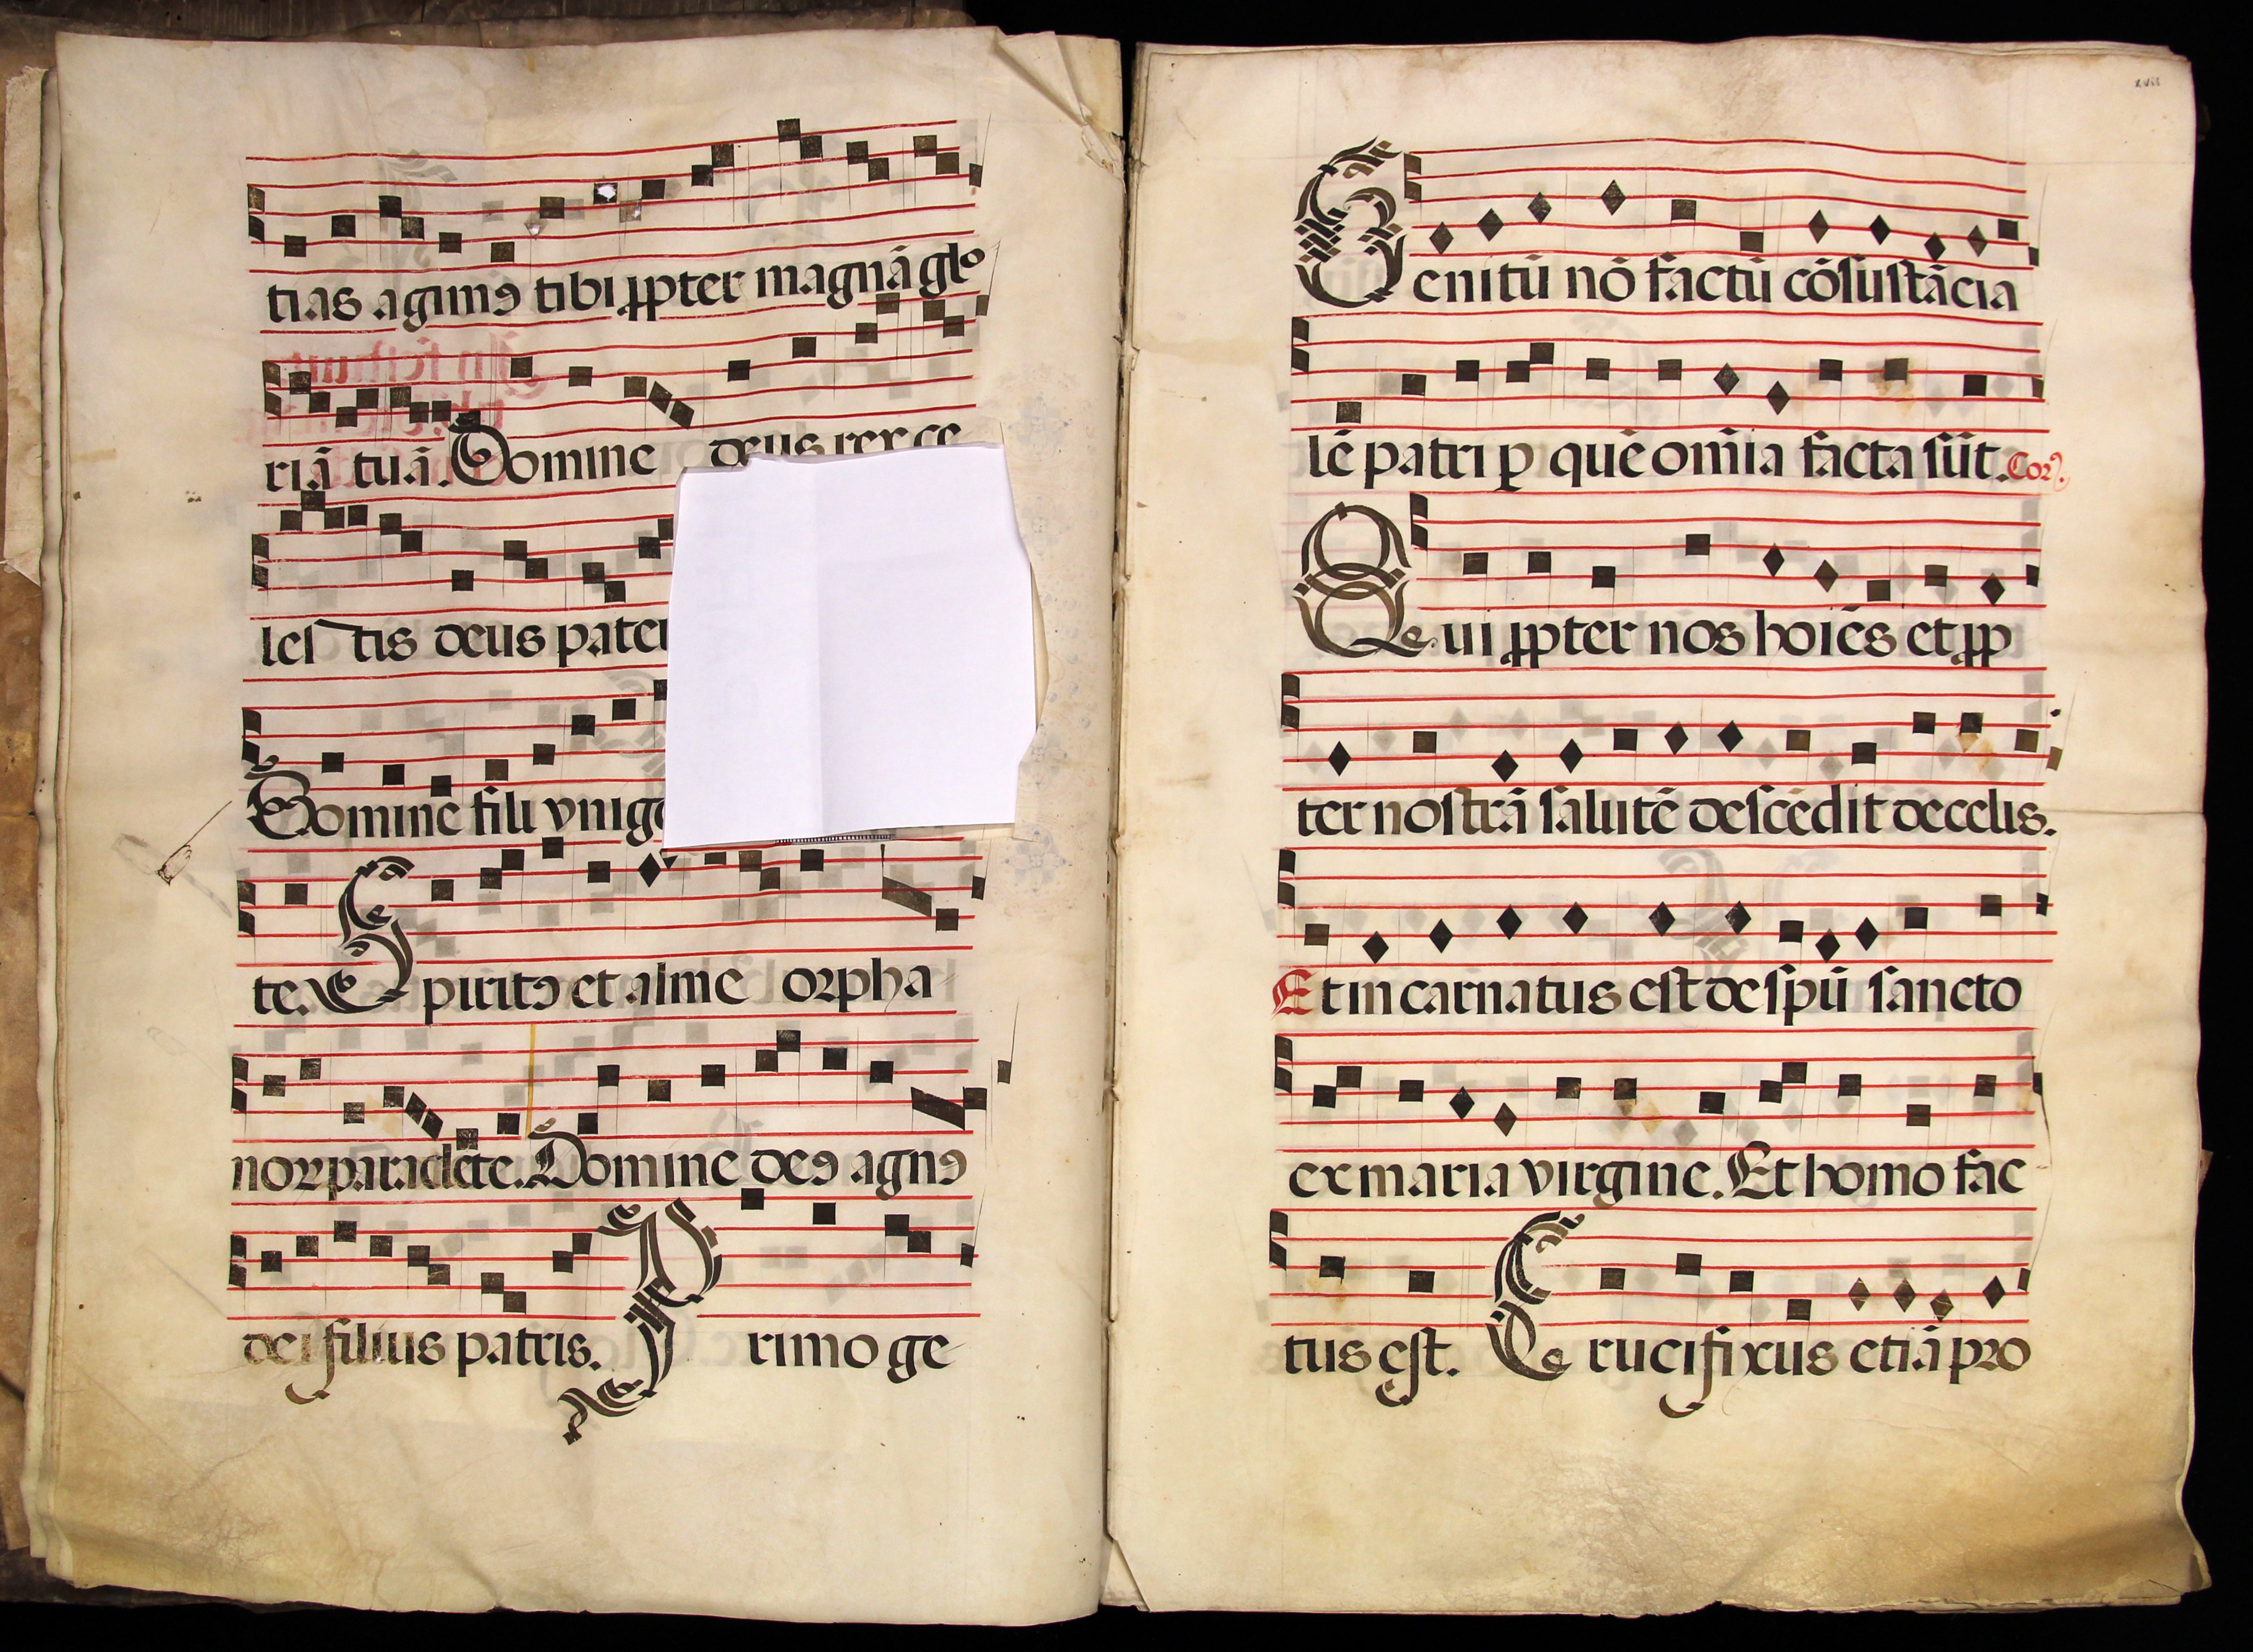 tias agimꝰ tibi ꝓpter magnā glo
riā tuā. Domine deus rex ce
les tis deus pater
Domine fili vnige
te. Spiritꝰ et alme orpha
nor paraclete. Domine deꝰ agnꝰ
dei filius patris. Primo ge
xvii
Genitū nō factū cōsustācia
lē patri ꝑ quē om̄ia facta sūt. Cor.
Qui ꝓpter nos hoiēs et ꝓp
ter nostrā salutē descēdit de celis.
Et in carnatus est de spū sancto
ex maria virgine. Et homo fac
tus est. Crucifixus etiā pro